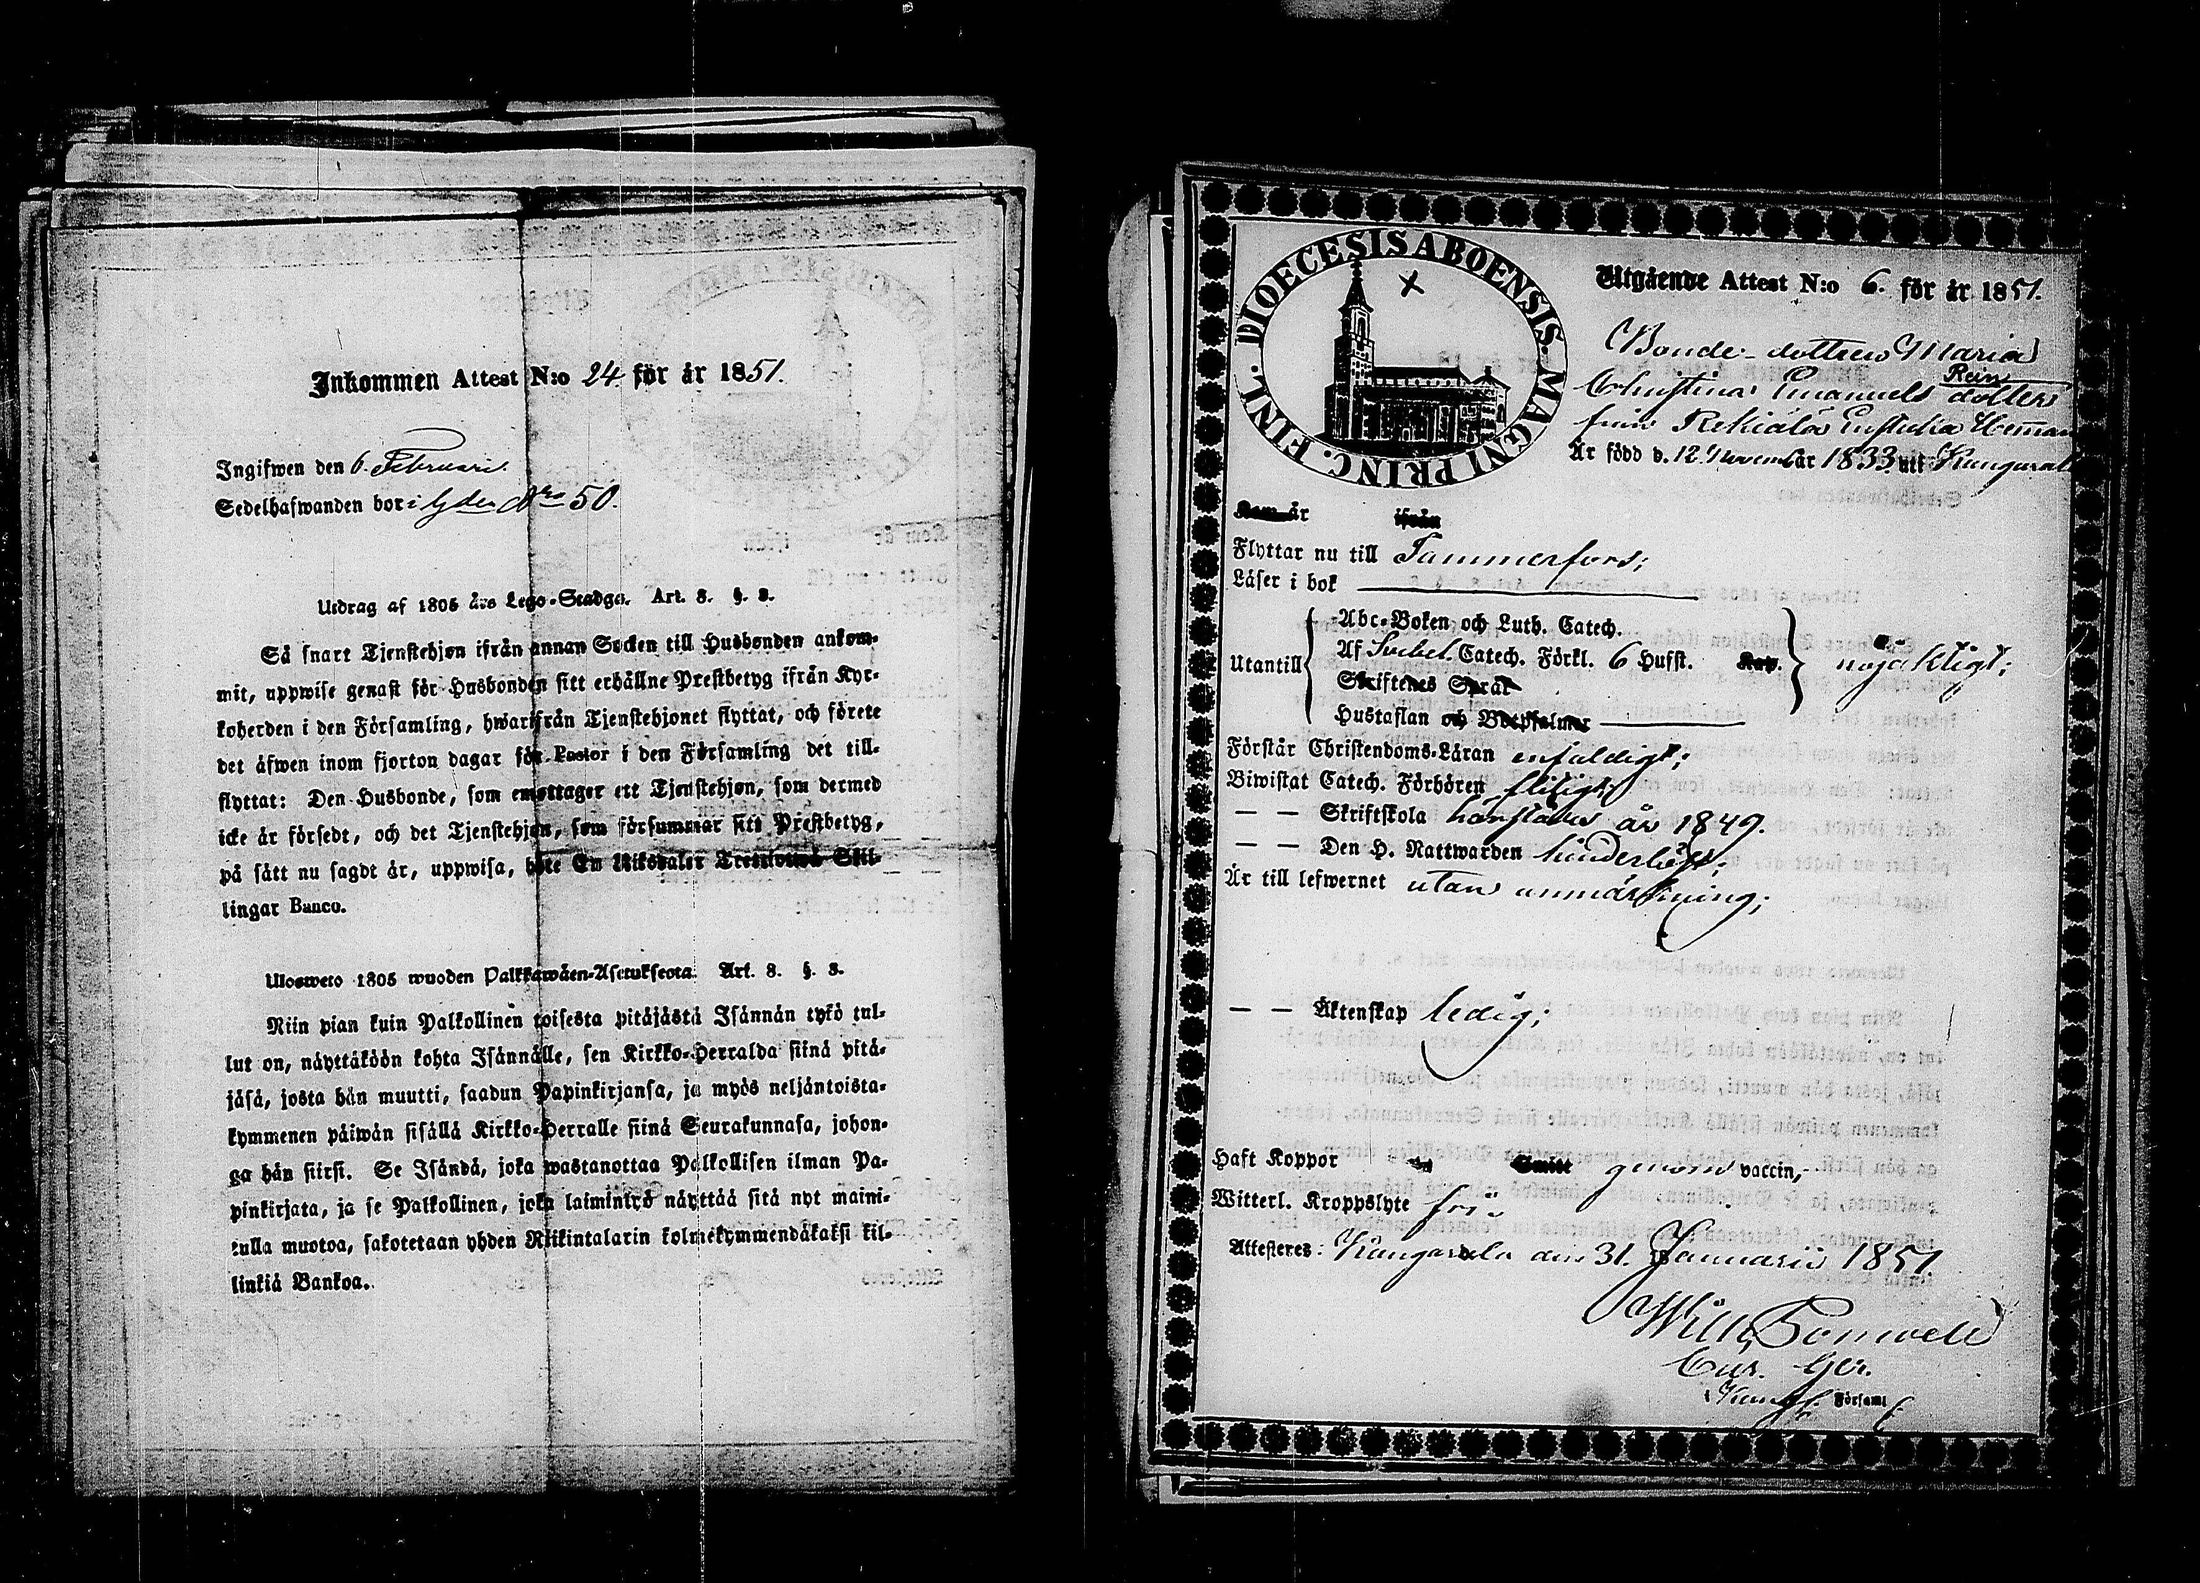 Inkommen Attest N:o 24 för år 1851.
Ingifwen den 6. Februari.
Sedelhafwanden bor i Gden Nro 50.
Utdrag af 1805 års Lego-Stadga. Art. 8. §. 8.
Så snart Tjenstehjon ifrån annan Socken till Husbonden ankom-
mit, uppwise genast för Husbonden sitt erhållne Prestbetyg ifrån Kyr-
koherden i den Församling, hwarifrån Tjenstehjonet flyttat, och förete
det äfwen inom fjorton dagar för Pastor i den Församling det till-
flyttat: Den Husbonde, som emottager ett Tjenstehjon, som dermed
icke är försedt, och det Tjenstehjon, som försummar sitt Prestbetyg,
på sätt nu sagdt är, uppwisa, böte En Riksdaler Trettiotvå Skil-
lingar Banco.
Ulosweto 1805 wuoden Palkkawäen-Asetuksesta. Art. 8. §. 8.
Niin pian kuin Palkollinen toisesta pitäjästä Isännän tykö tul-
lut on, näyttäköön kohta Isännälle, sen Kirkko-Herralda siinä pitä-
jäsä, josta hän muutti, saadun Papinkirjansa, ja myös neljäntoista-
kymmenen päiwän sisällä Kirkko-Herralle siinä Seurakunnasa, johon-
ga hän siirsi. Se Isändä, joka wastanottaa Palkollisen ilman Pa-
pinkirjata, ja se Palkollinen, joka laiminlyö näyttää sitä nyt maini-
tulla muotoa, sakotetaan yhden Riikintalarin kolmekymmendäkaksi kil-
linkiä Bankoa.
DIOECESIS ABOENSIS. MAGNI PRINC. FINL.
Utgående Attest N:o 6. för år 1851.
Bonde-dottren Maria
Rein
Christina Emanuels dotter
från Rekiälä Heman
Är född d. 12 November 1833 uti Kangasala
Kom år ifrån
Flyttar nu till Tammerfors;
Läser i bok
Utantill
Abc-Boken och Luth. Catech.
Af Svebel. Catech. Förkl. 6 Hufst. Kap. nöjaktigt;
Skriftenes Språk
Hustaflan och Botpsalmer
Förstår Christendoms-Läran enfaldigt;
Biwistat Catech. Förhören flitigt;
— — Skriftskola år 1849.
— — Den H. Nattwarden
Är till lefwernet utan anmärkning;
— — Äktenskap ledig;
Haft Koppor genom vaccin,
Witterl. Kroppslyte fri
Attesteres: Kangasala den 31. Januarii 1851.
Församl